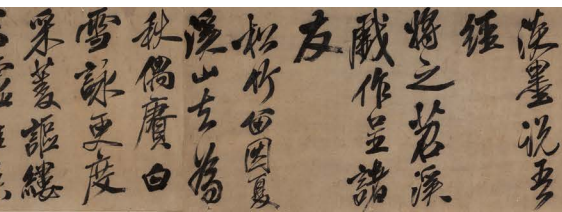 淡墨吾
經
將之苕溪
戲作呈諸
友
松竹留因夏
溪山去為
秋賡白
雪詠更度
采菱謳縷